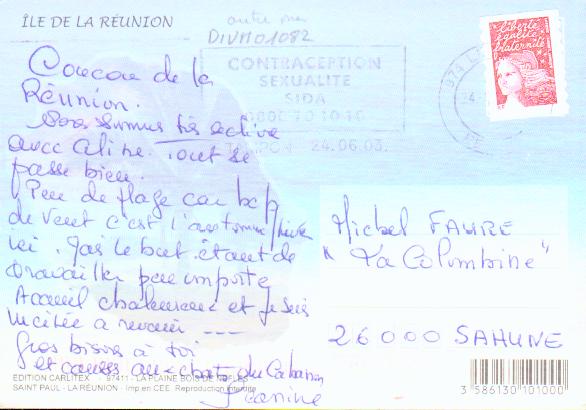 ÎLE DE LA RÉUNION
DIVM01082
CONTRACEPTION
SEXUALITE
SIDA
24.06.03.
liberté
égalité
fraternité
Coucou de la
Réunion.
Nous sommes très active
avec Aline. Tout se
passe bien.
Peu de plage car bcp
de vent c'est l'automne/hiver
ici. Mais le but étant de
travailler peu importe
Accueil chaleureux et je suis
incitée a revenir ---
Gros bisous à toi
et caresses aux chats du Cabanon
Jeanine
Michel FAURE
"La Colombine"
26000 SAHUNE
EDITION CARLITEX - 97411 - LA PLAINE BOIS DE NEFLES
SAINT PAUL - LA REUNION - Imp. en CEE Reproduction interdite
3 586130 101000